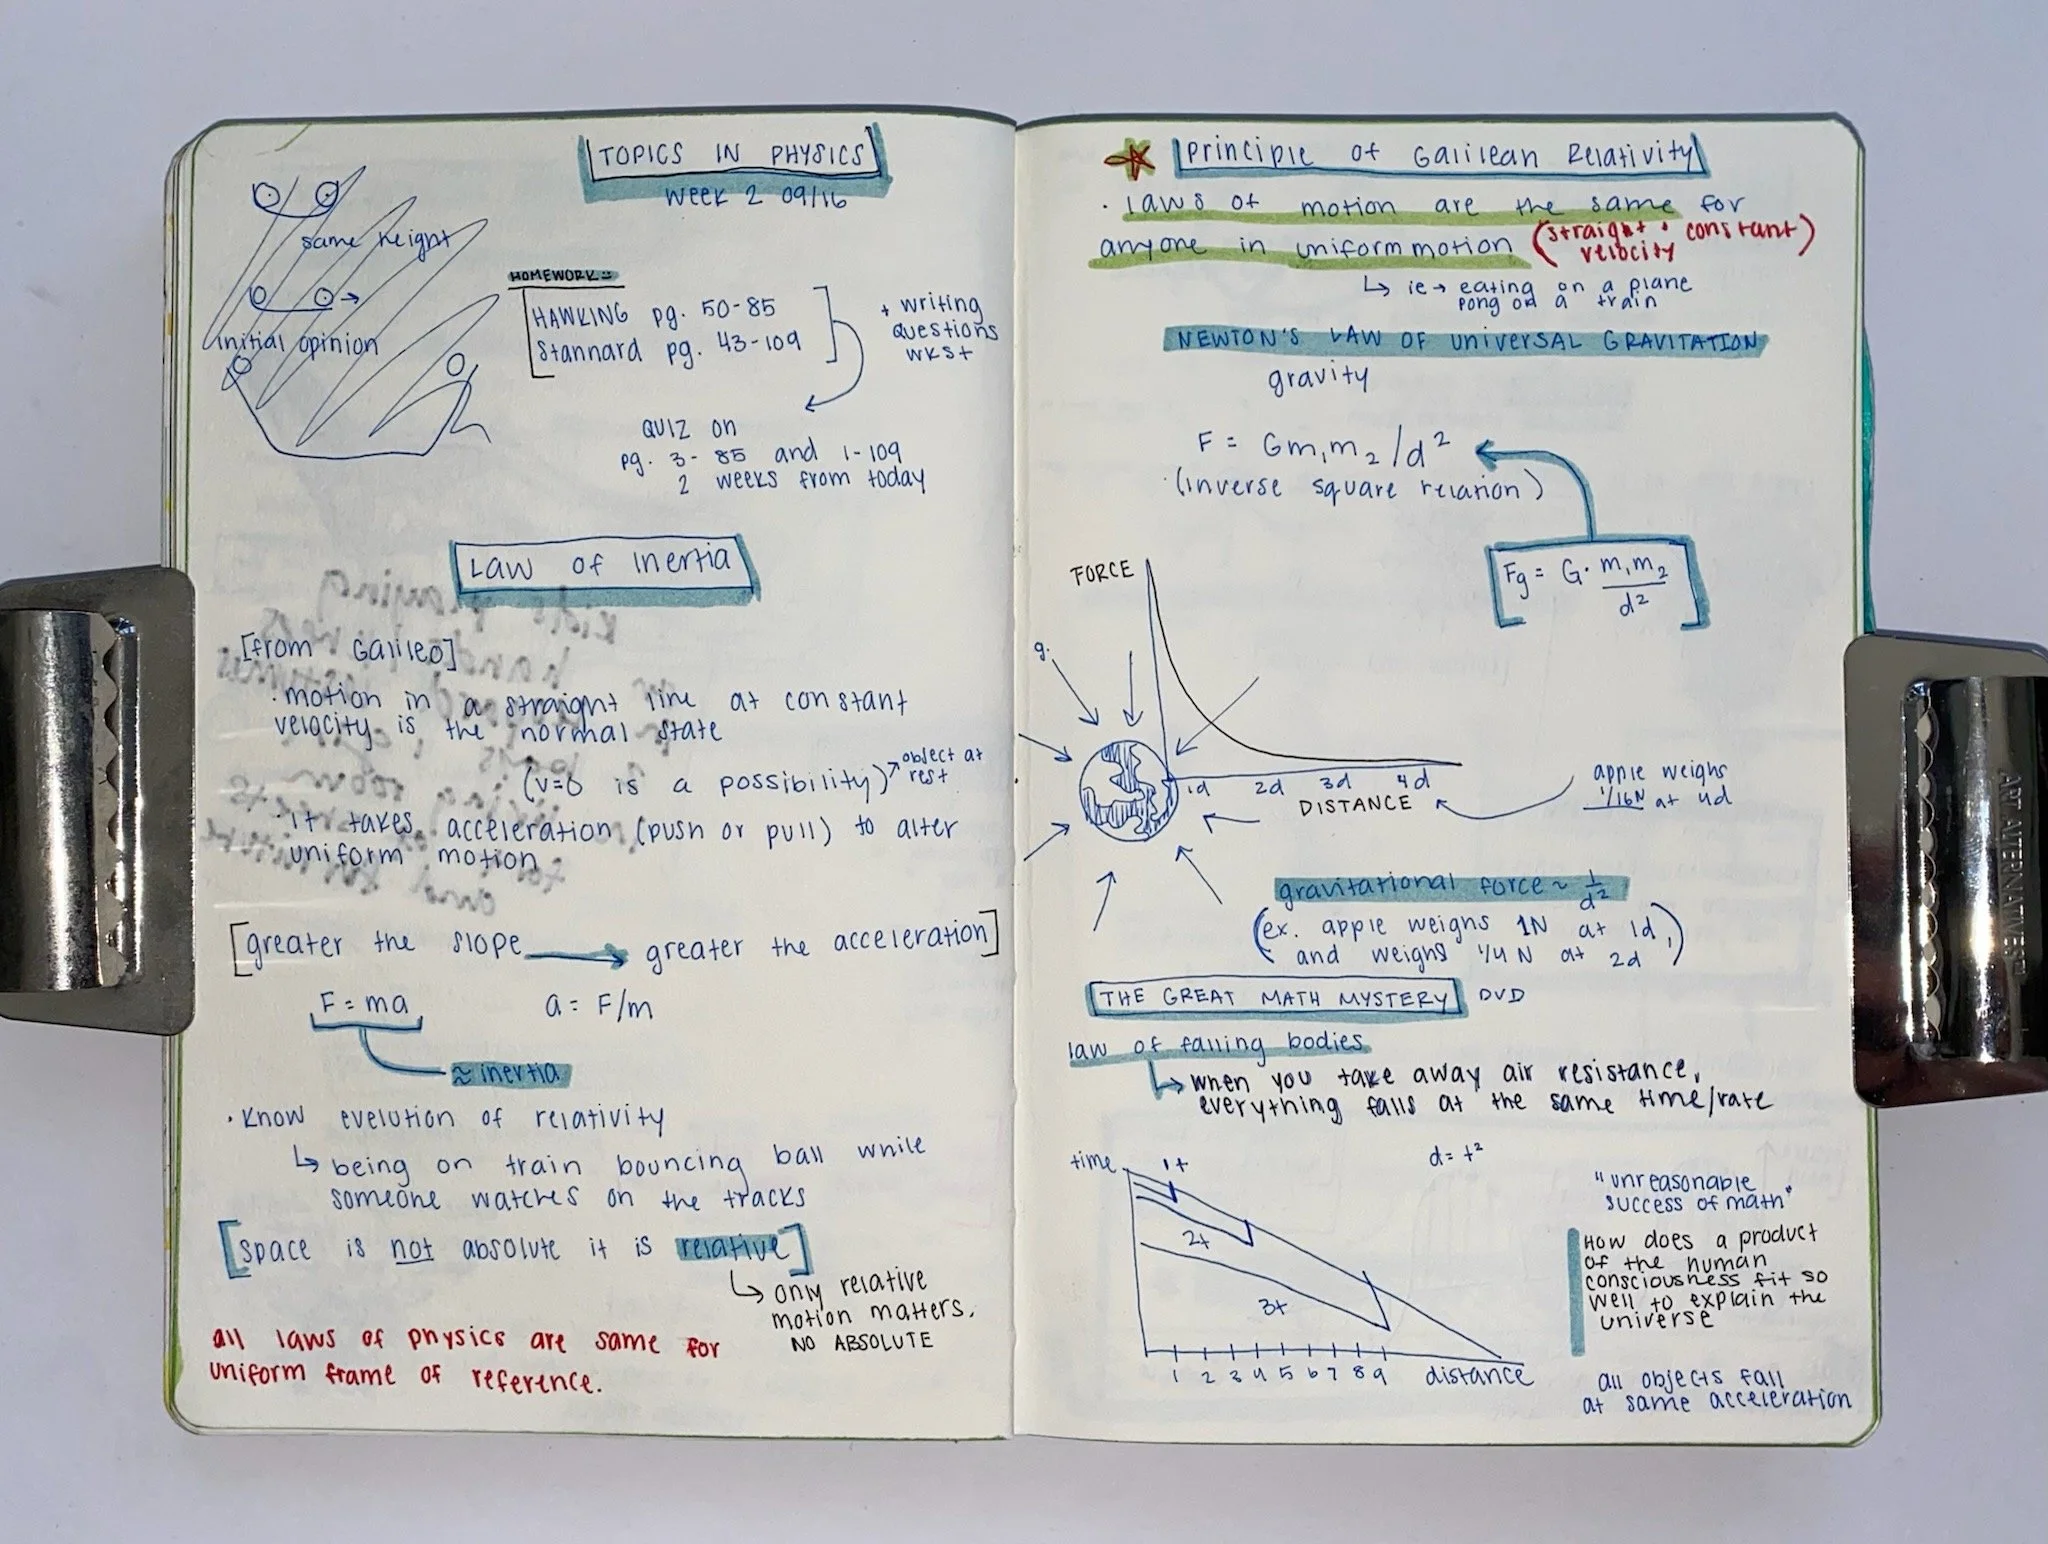 TOPICS IN PHYSICS
week 2 09/16
same height
initial opinion
HOMEWORK:
HAWKING pg. 50-85
Stannard pg. 43-109
+ writing
questions
wkst
QUIZ on
pg. 3-85 and 1-109
2 weeks from today
Law of Inertia
[from Galileo]
· motion in a straight line at constant
velocity is the normal state
(v=0 is a possibility)
object at
rest
· it takes acceleration (push or pull) to alter
uniform motion
[greater the slope → greater the acceleration]
F = ma a = F/m
≈ inertia
· Know evelution of relativity
↳ being on train bouncing ball while
someone watches on the tracks
[space is not absolute it is relative]
↳ only relative
motion matters.
NO ABSOLUTE
all laws of physics are same for
uniform frame of reference.
Principle of Galilean Relativity
· laws of motion are the same for
anyone in uniform motion (straight + constant)
velocity
↳ ie → eating on a plane
pong on a train
NEWTON'S LAW OF UNIVERSAL GRAVITATION
gravity
F = Gm₁m₂/d²
(inverse square relation)
Fg = G · m₁m₂
d²
FORCE
g.
1d 2d 3d 4d
DISTANCE
apple weighs
1/16N at 4d
gravitational force ~ 1/d²
(ex. apple weighs 1N at 1d,
and weighs 1/4 N at 2d)
THE GREAT MATH MYSTERY DVD
law of falling bodies
↳ when you take away air resistance,
everything falls at the same time/rate
time
1t
2t
3t
d = t²
1 2 3 4 5 6 7 8 9 distance
"unreasonable
success of math"
How does a product
of the human
consciousness fit so
well to explain the
universe
all objects fall
at same acceleration
ART ALTERNATIVES